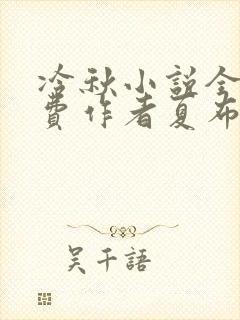 冷秋小説全
費作者夏布
吴千語